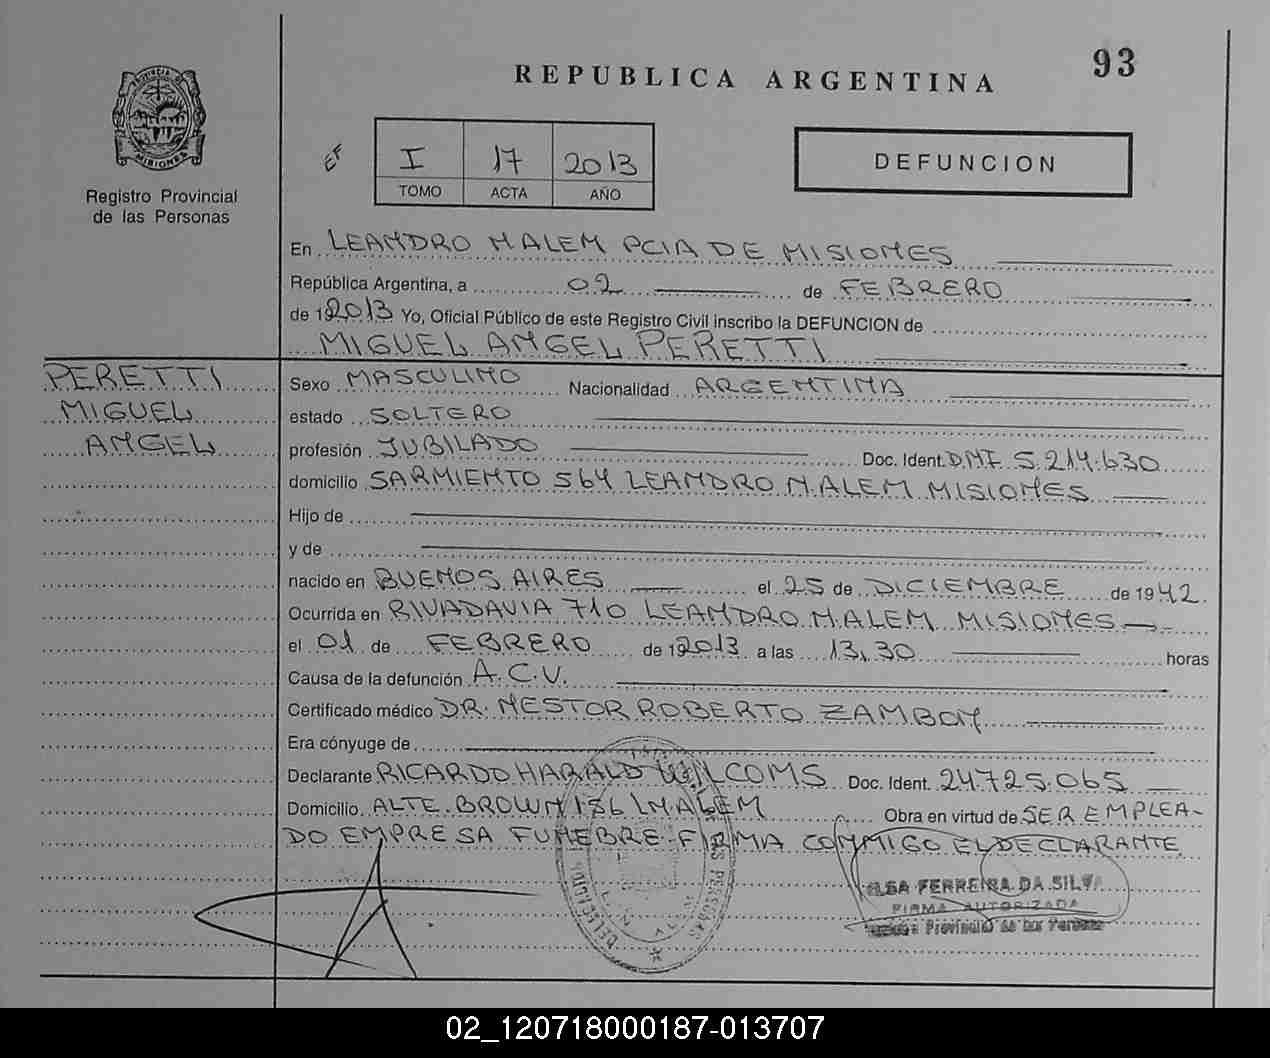 REPUBLICA ARGENTINA
93
PROVINCIA DE
MISIONES
Registro Provincial
de las Personas
EF
I 17 2013
TOMO ACTA AÑO
DEFUNCION
En LEANDRO N ALEM PCIA DE MISIONES
República Argentina, a 02 de FEBRERO
de 192013 Yo, Oficial Público de este Registro Civil inscribo la DEFUNCION de
MIGUEL ANGEL PERETTI
PERETTI
MIGUEL
ANGEL
Sexo MASCULINO Nacionalidad ARGENTINA
estado SOLTERO
profesión JUBILADO Doc. Ident. D.N.I. 5.214.630
domicilio SARMIENTO 564 LEANDRO N. ALEM MISIONES
Hijo de
y de
nacido en BUENOS AIRES el 25 de DICIEMBRE de 1942
Ocurrida en RIVADAVIA 710 LEANDRO N. ALEM MISIONES
el 01 de FEBRERO de 192013 a las 13,30 horas
Causa de la defunción A.C.V.
Certificado médico DR. NESTOR ROBERTO ZAMBON
Era cónyuge de
Declarante RICARDO HARALD WILCOMS Doc. Ident. 24.725.065
Domicilio ALTE. BROWN 186 LNALEM Obra en virtud de SER EMPLEA-
DO EMPRESA FUNEBRE-FIRMA CONMIGO EL DECLARANTE
FERREIRA DA SILVA
FIRMA AUTORIZADA
Provincial de las Personas
02_120718000187-013707